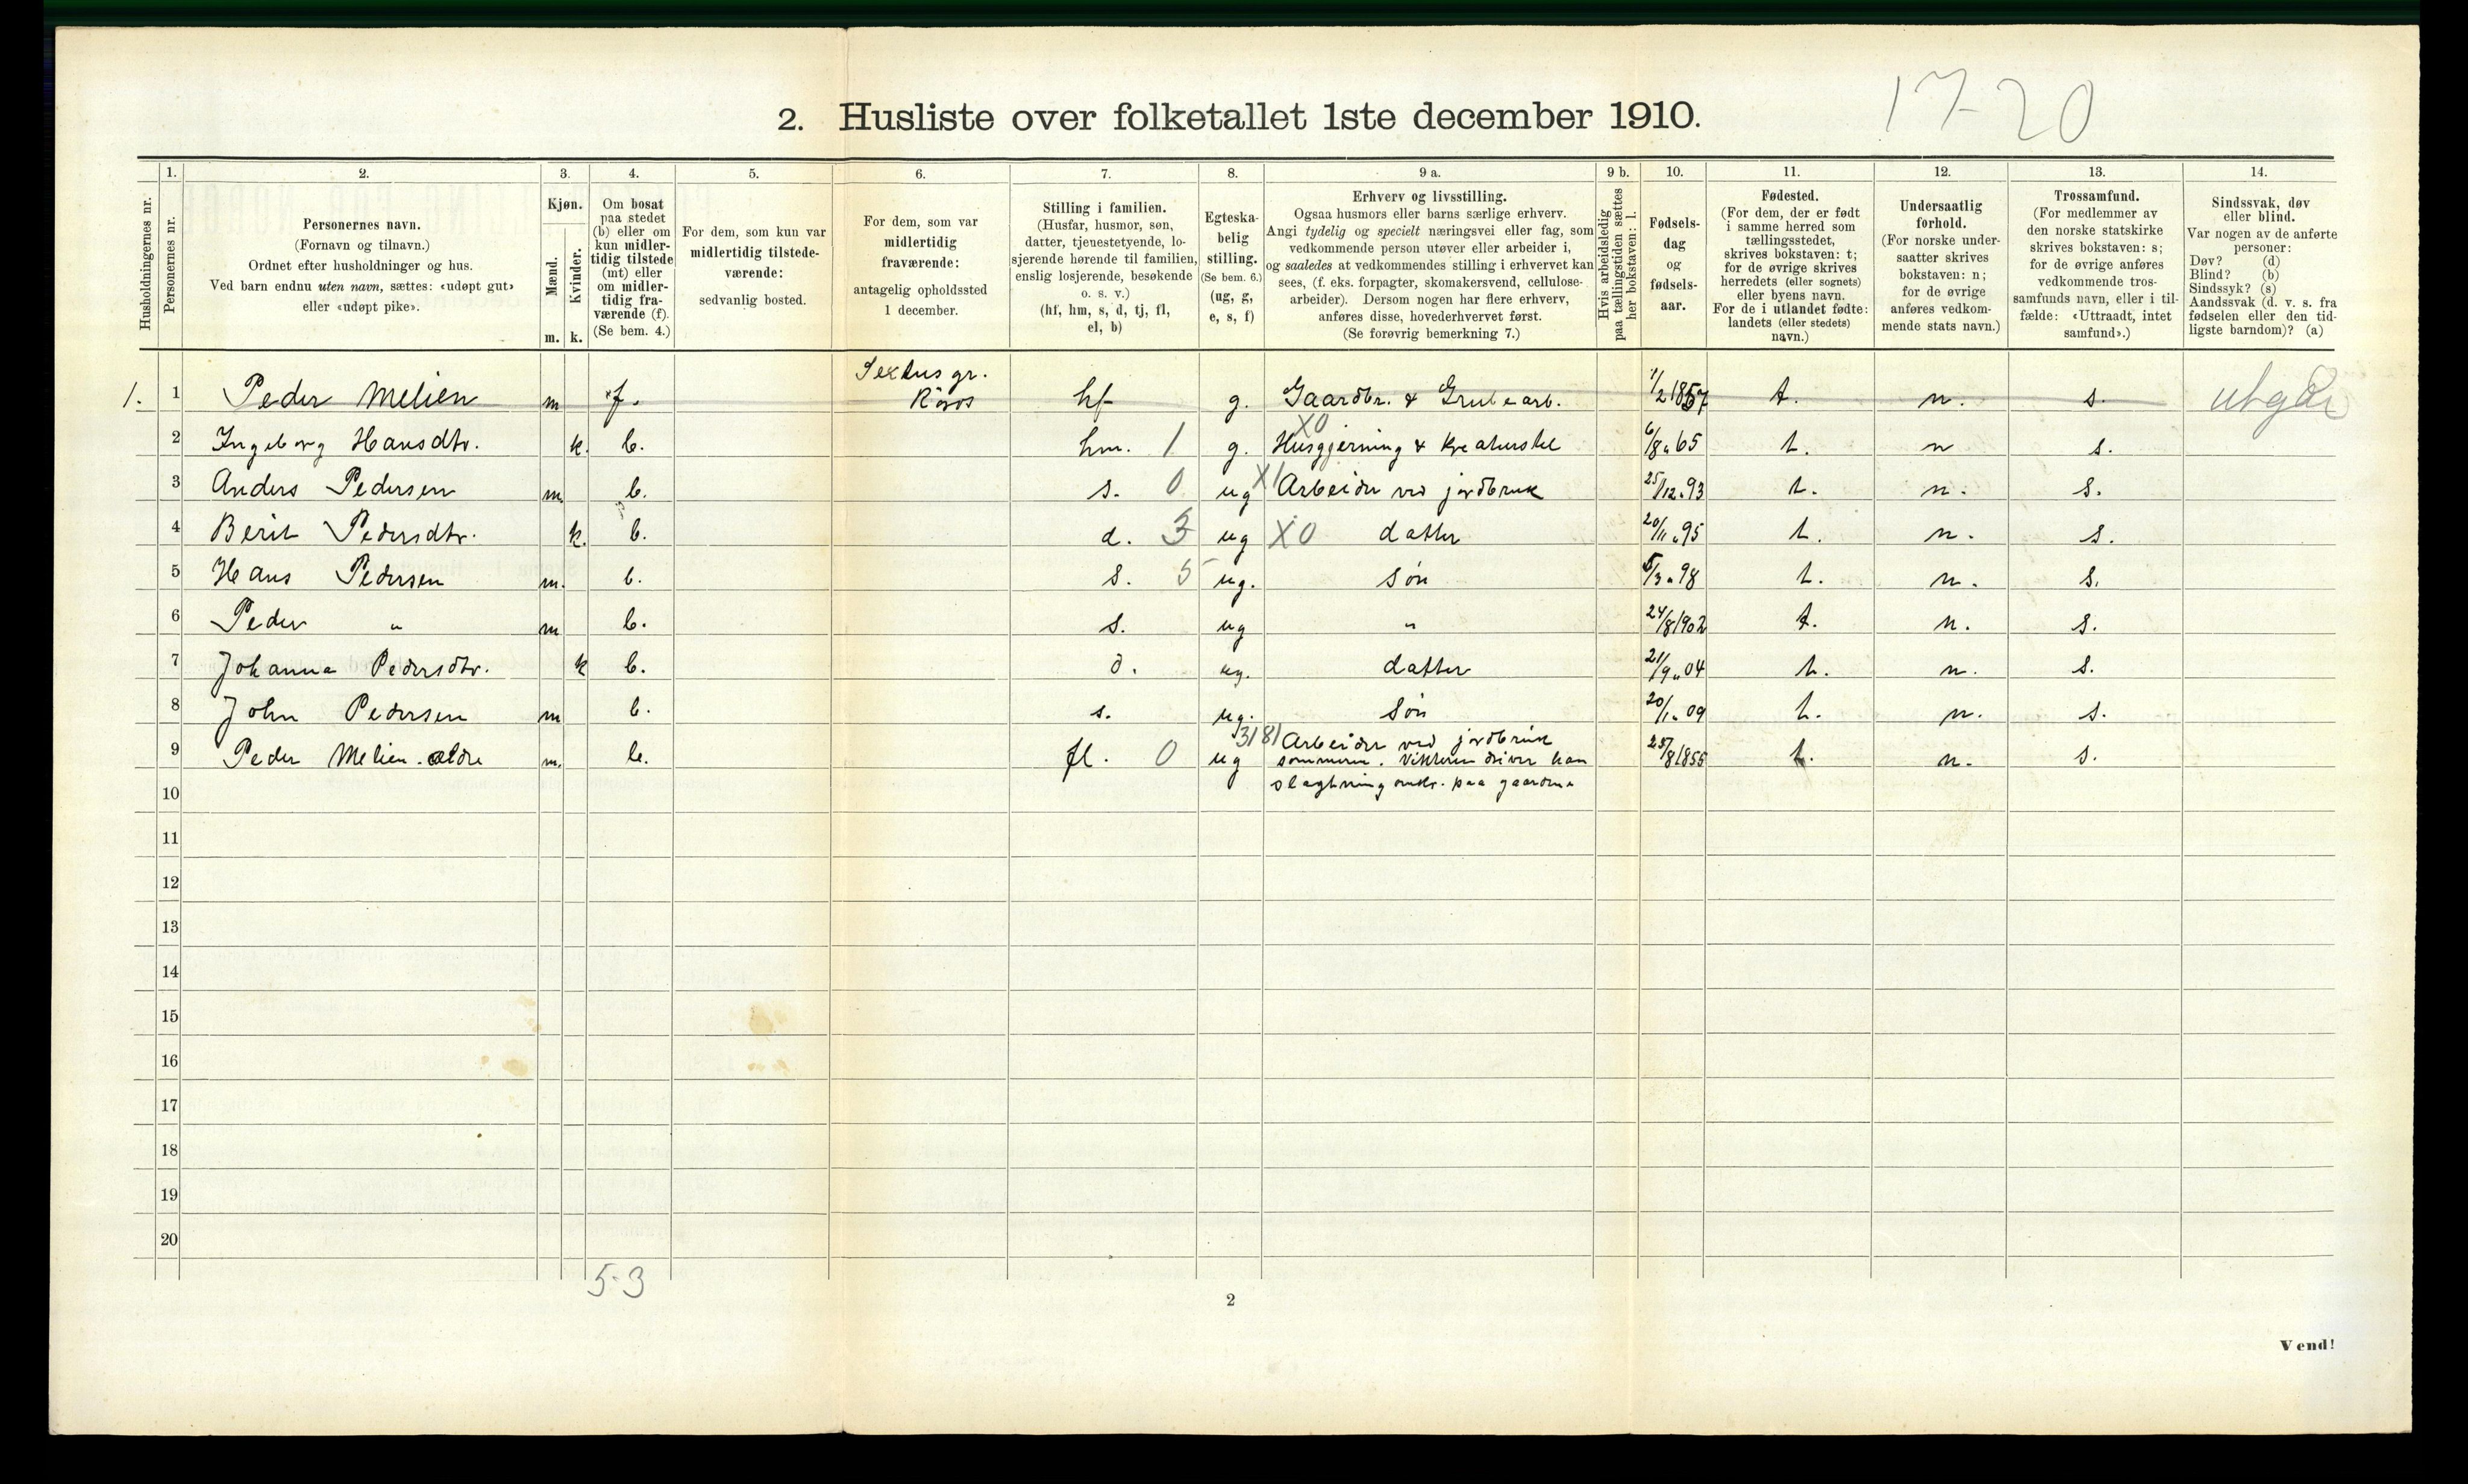 17-20
2. Husliste over folketallet 1ste december 1910.
Husholdningernes nr.
1.
Personernes nr.
2.
Personernes navn.
(Fornavn og tilnavn.)
Ordnet efter husholdninger og hus.
Ved barn endnu uten navn, sættes: «udøpt gut»
eller «udøpt pike».
3.
Kjøn.
Mænd.
Kvinder.
m. k.
4.
Om bosat
paa stedet
(b) eller om
kun midler-
tidig tilstede
(mt) eller
om midler-
tidig fra-
værende (f).
(Se bem. 4.)
5.
For dem, som kun var
midlertidig tilstede-
værende:
sedvanlig bosted.
6.
For dem, som var
midlertidig
fraværende:
antagelig opholdssted
1 december.
7.
Stilling i familien.
(Husfar, husmor, søn,
datter, tjenestetyende, lo-
sjerende hørende til familien,
enslig losjerende, besøkende
o. s. v.)
(hf, hm, s, d, tj, fl,
el, b)
8.
Egteska-
belig
stilling.
(Se bem. 6.)
(ug, g,
e, s, f)
9 a.
Erhverv og livsstilling.
Ogsaa husmors eller barns særlige erhverv.
Angi tydelig og specielt næringsvei eller fag, som
vedkommende person utøver eller arbeider i,
og saaledes at vedkommendes stilling i erhvervet kan
sees, (f. eks. forpagter, skomakersvend, cellulose-
arbeider). Dersom nogen har flere erhverv,
anføres disse, hovederhvervet først.
(Se forøvrig bemerkning 7.)
9 b.
Hvis arbeidsledig
paa tællingstiden sættes
her bokstaven: l.
10.
Fødsels-
dag
og
fødsels-
aar.
11.
Fødested.
(For dem, der er født
i samme herred som
tællingsstedet,
skrives bokstaven: t;
for de øvrige skrives
herredets (eller sognets)
eller byens navn.
For de i utlandet fødte:
landets (eller stedets)
navn.)
12.
Undersaatlig
forhold.
(For norske under-
saatter skrives
bokstaven: n;
for de øvrige
anføres vedkom-
mende stats navn.)
13.
Trossamfund.
(For medlemmer av
den norske statskirke
skrives bokstaven: s;
for de øvrige anføres
vedkommende tros-
samfunds navn, eller i til-
fælde: «Uttraadt, intet
samfund».)
14.
Sindssvak, døv
eller blind.
Var nogen av de anførte
personer:
Døv? (d)
Blind? (b)
Sindssyk? (s)
Aandssvak (d. v. s. fra
fødselen eller den tid-
ligste barndom)? (a)
Sextus gr.
1. 1 Peder Melien m f. Röros hf g. Gaardbr. & Grubearb. 1/2 1857 t. n. s. utgår
2 Ingeborg Hansdtr. k. b. hm. 1 g. X0 Husgjerning & Kreaturstel 6/8 " 65 t. n s.
3 Anders Pedersen m. b. s. 0 ug X1 Arbeider ved jordbruk 25/12 " 93 t. n. s.
4 Berit Pedersdtr. k. b. d. 3 ug X0 datter 20/11 " 95 t. n. s.
5 Hans Pedersen m. b. s. 5 ug. Søn 5/3 " 98 t. n. s.
6 Peder " m b. s. ug " 24/8 1902 t. n. s.
7 Johanna Pedersdtr. k b. d. ug. datter 21/9 " 04 t. n. s.
8 John Pedersen m b. s. ug. Søn 20/1 " 09 t. n. s.
9 Peder Melien. ældre m. b. fl. 0 ug 3181 Arbeider ved jordbruk 25/8 1855 t. n. s.
sommeren. Vinteren driver han
slagtning omkr. paa gaardene
10
11
12
13
14
15
16
17
18
19
20
5-3
2
Vend!